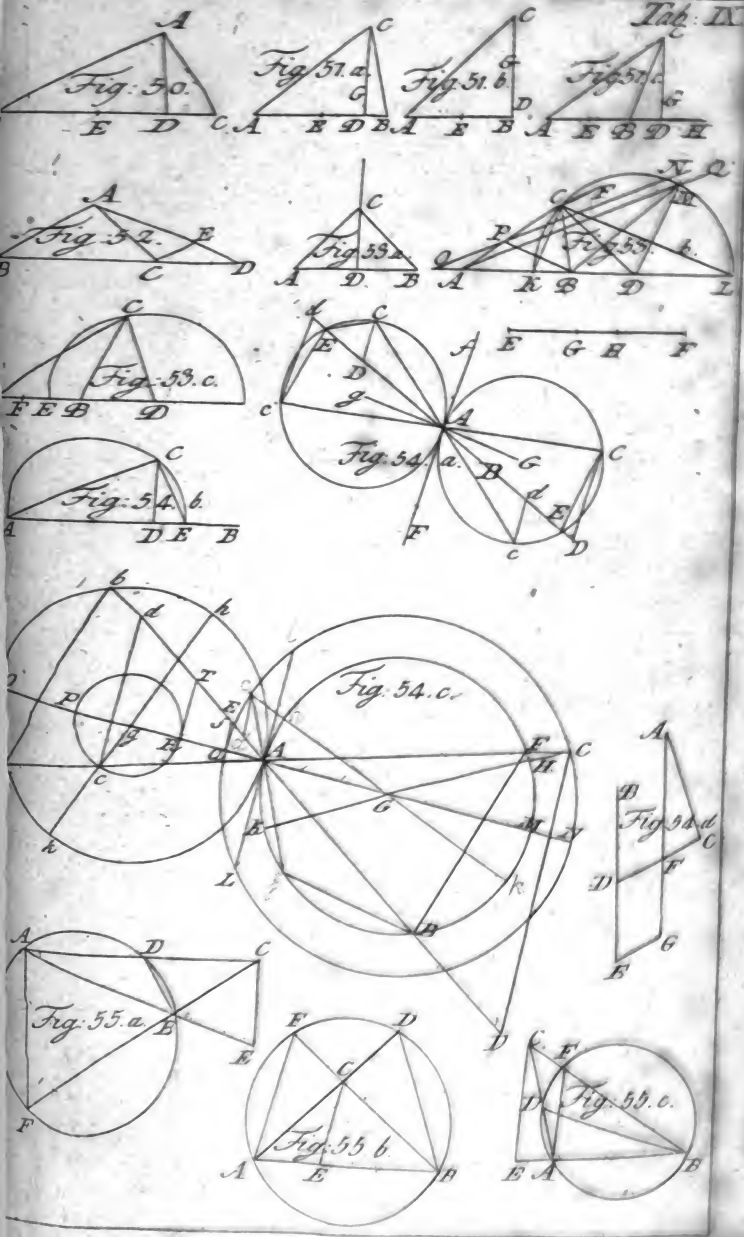 Tab: IX
A
Fig: 50.
E D C
C
Fig: 51. a.
G
A E D B
C
Fig: 51. b.
G
D
A E B
C
Fig: 51. c.
G
A E B D H
A
Fig: 52.
E
B C D
C
Fig: 53. a.
A D B
N Q
C F M
P
Fig: 53. b.
O A K B D L
C
Fig: 53. c.
F E B D
d C
E
D
g
c
A
f
F
Fig: 54. a.
B G C
d
E
c D
E G H F
C
Fig: 54. b.
A D E B
b
d h
P
g
c
k
A
L
Fig: 54. c.
F C
H
G
M N
K
k
B
D
A
B
Fig: 54. d
C
D F
G
E
A D C
Fig: 55. a.
B
E
F
F D
C
Fig: 55. b.
A E B
C F
Fig: 55. c.
D
E A B